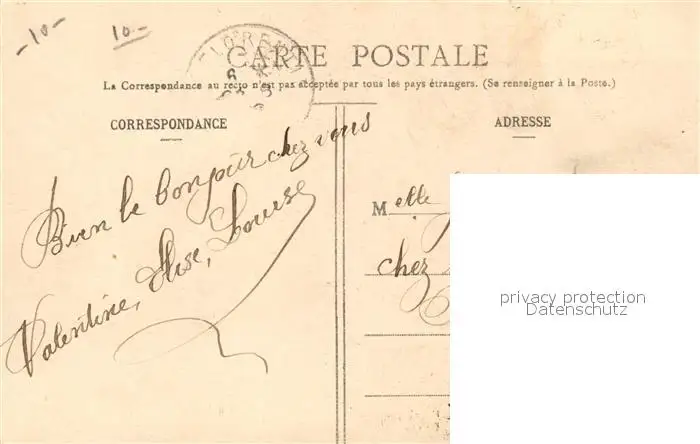 -10-
10-
CARTE POSTALE
La Correspondance au recto n'est pas acceptée par tous les pays étrangers. (Se renseigner à la Poste.)
CORRESPONDANCE
ADRESSE
Bien le bonjour chez vous
Valentine, Elise, Louise
Melle
chez
privacy protection
Datenschutz